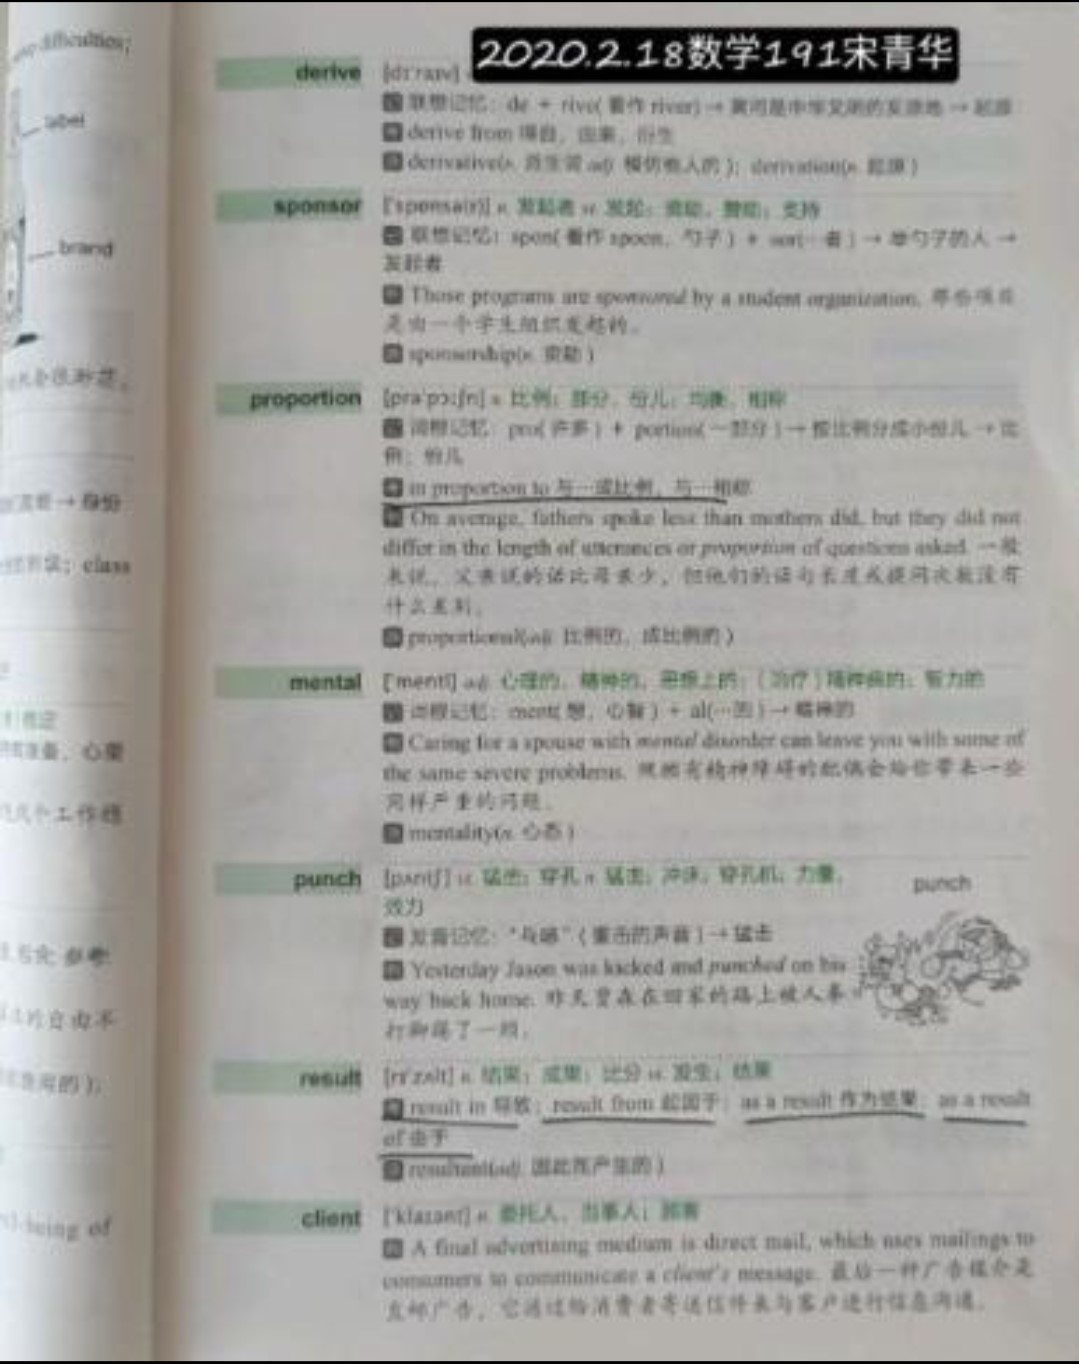 difficulties;
label
brand
→ 身份
class
心理
个工作
参考
的自由不
being of
2020.2.18数学191宋青华
derive [dɪ'raɪv]
联想记忆：de + rive(看作 river) → 黄河是中华文明的发源地 → 起源
derive from 得自，由来，衍生
derivative(n. 派生词 adj. 模仿他人的)；derivation(n. 起源)
sponsor ['spɒnsə(r)] n. 发起者 vt. 发起；资助，赞助；支持
联想记忆：spon(看作 spoon，勺子) + sor(…者) → 举勺子的人 →
发起者
Those programs are sponsored by a student organization. 那些项目
是由一个学生组织发起的。
sponsorship(n. 资助)
proportion [prə'pɔːʃn] n. 比例；部分，份儿；均衡，相称
词根记忆：pro(许多) + portion(一部分) → 按比例分成小份儿 → 比
例；份儿
in proportion to 与…成比例，与…相称
On average, fathers spoke less than mothers did, but they did not
differ in the length of utterances or proportion of questions asked. 一般
来说，父亲说的话比母亲少，但他们的语句长度或提问次数没有
什么差别。
proportional(adj. 比例的，成比例的)
mental ['mentl] adj. 心理的，精神的，思想上的；(治疗)精神病的；智力的
词根记忆：ment(想，心智) + al(…的) → 精神的
Caring for a spouse with mental disorder can leave you with some of
the same severe problems. 照顾有精神障碍的配偶会给你带来一些
同样严重的问题。
mentality(n. 心态)
punch [pʌntʃ] vt. 猛击；穿孔 n. 猛击；冲床，穿孔机；力量，
效力
punch
发音记忆："乓哧"(重击的声音) → 猛击
Yesterday Jason was kicked and punched on his
way back home. 昨天贾森在回家的路上被人拳
打脚踢了一顿。
result [rɪ'zʌlt] n. 结果；成果；比分 vi. 发生；结果
result in 导致；result from 起因于；as a result 作为结果；as a result
of 由于
resultant(adj. 因此而产生的)
client ['klaɪənt] n. 委托人，当事人；顾客
A final advertising medium is direct mail, which uses mailings to
consumers to communicate a client's message. 最后一种广告媒介是
直邮广告，它通过给消费者寄送信件来与客户进行信息沟通。